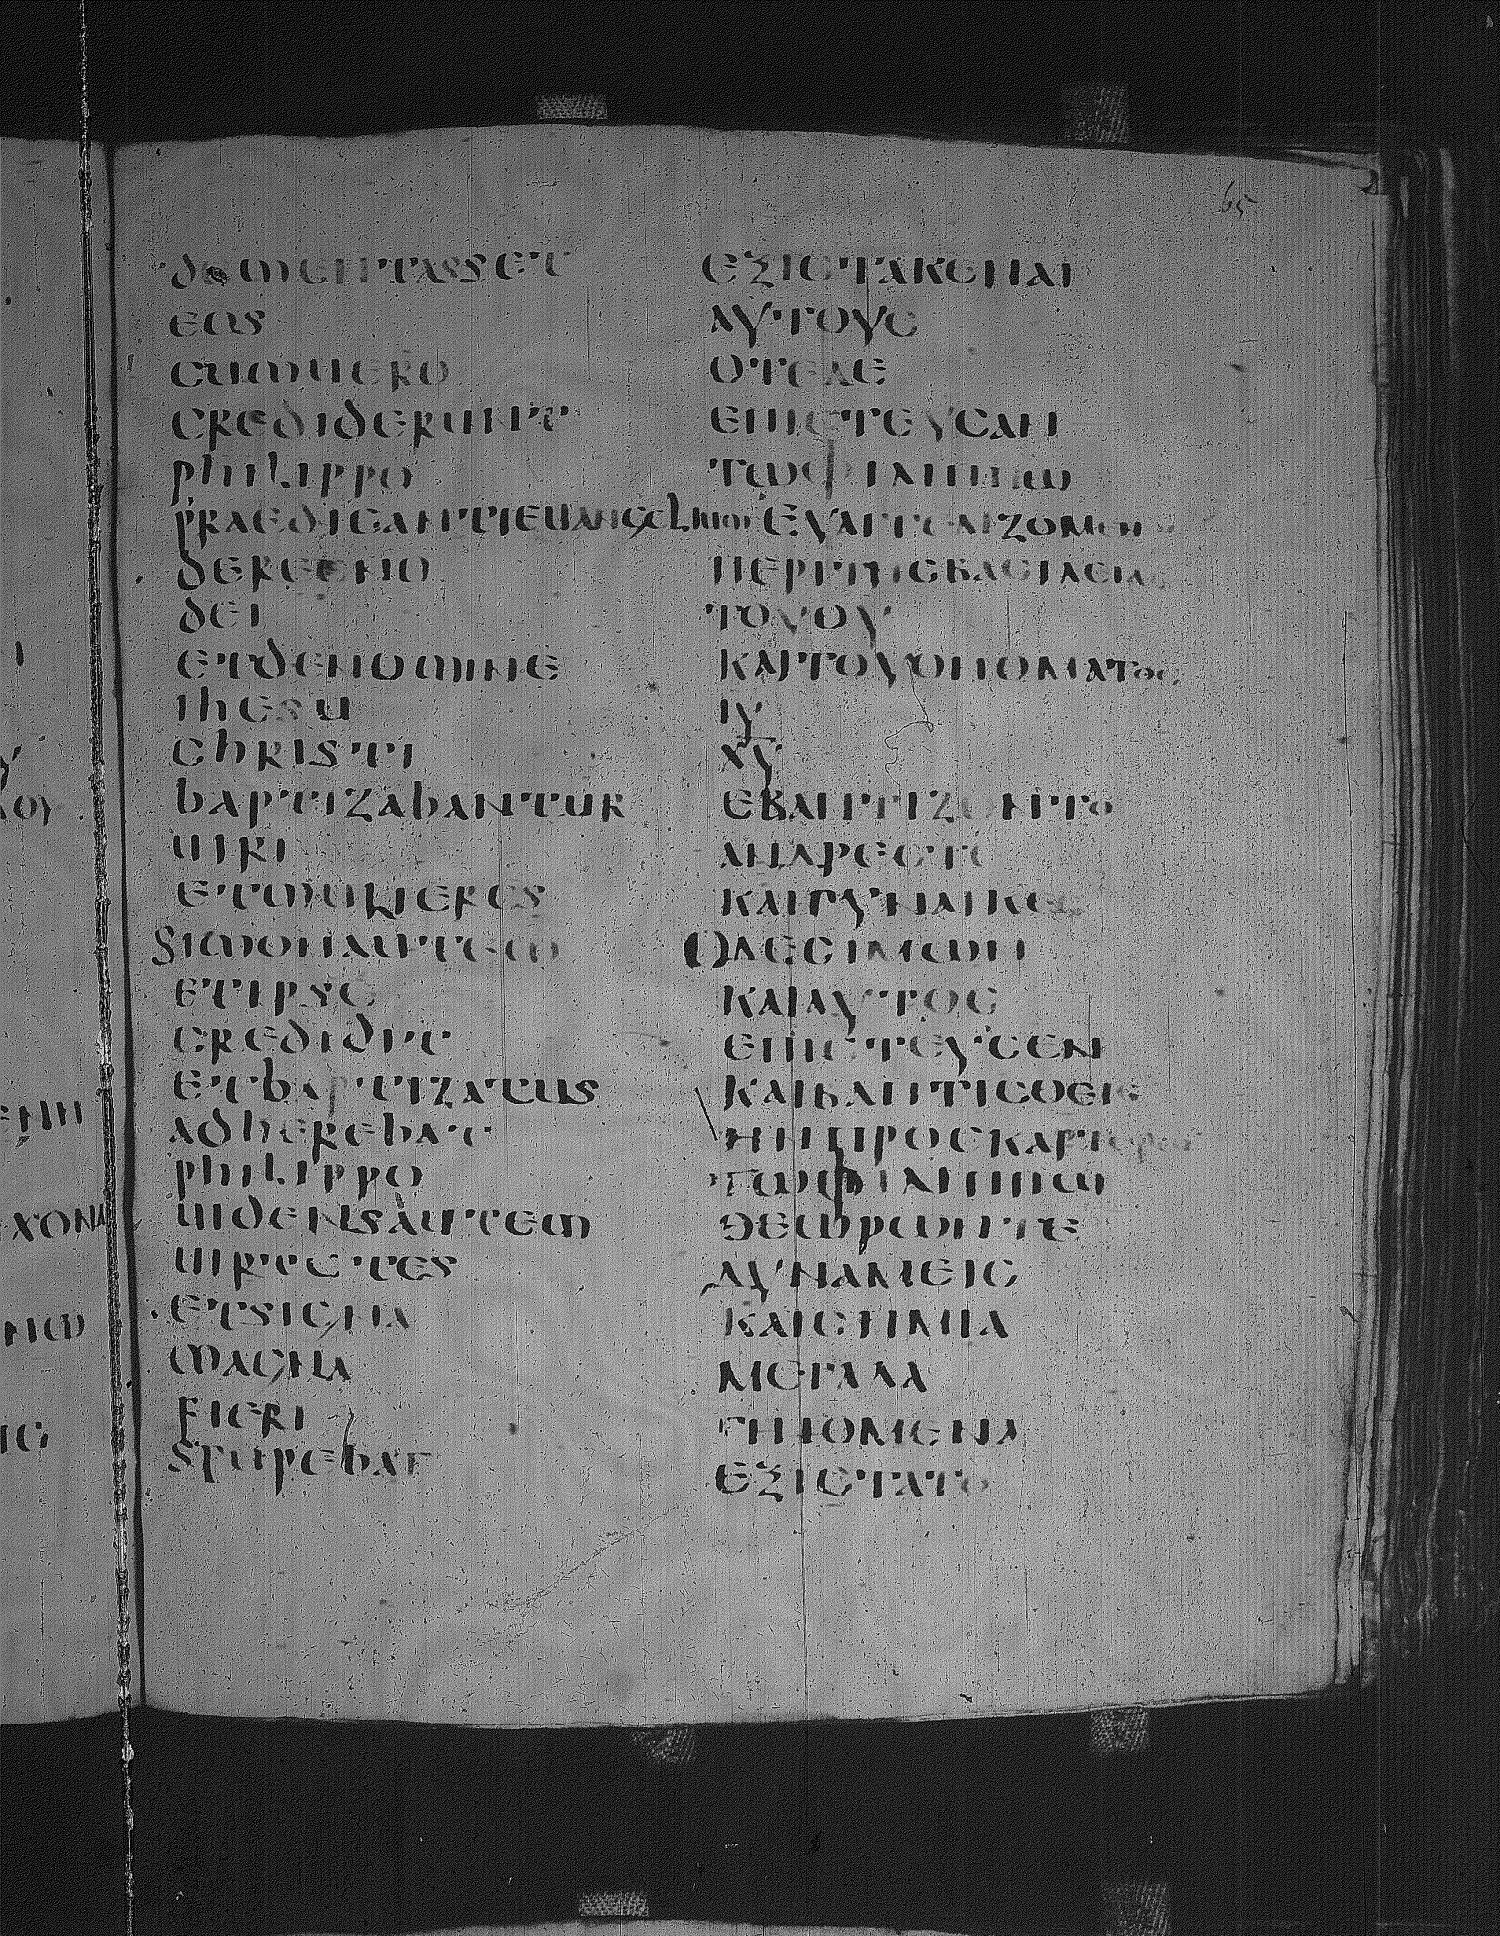 dementasset
eos
cumuero
crediderunt
philippo
praedicantieuangelium
deregno
dei
etdenomine
ihesu
christi
baptizabantur
uiri
etmulieres
Simonautem
etipse
credidit
etbaptizatus
adherebat
philippo
uidensautem
uirtutes
etsigna
magna
fieri
stupebat
65
ΕΞΙΣΤΑΚΕΝΑΙ
ΑΥΤΟΥΣ
ΟΤΕΔΕ
ΕΠΙΣΤΕΥΣΑΝ
ΤΩΦΙΛΙΠΠΩ
ΕΥΑΓΓΕΛΙΖΟΜΕΝΩ
ΠΕΡΙΤΗΣΒΑΣΙΛΕΙΑΣ
ΤΟΥΘΥ
ΚΑΙΤΟΥΟΝΟΜΑΤΟΣ
ΙΥ
ΧΥ
ΕΒΑΠΤΙΖΟΝΤΟ
ΑΝΔΡΕΣΤΕ
ΚΑΙΓΥΝΑΙΚΕΣ
ΟΔΕΣΙΜΩΝ
ΚΑΙΑΥΤΟΣ
ΕΠΙΣΤΕΥΣΕΝ
ΚΑΙΒΑΠΤΙΣΘΕΙΣ
ΗΝΠΡΟΣΚΑΡΤΕΡΩΝ
ΤΩΦΙΛΙΠΠΩ
ΘΕΩΡΩΝΤΕ
ΔΥΝΑΜΕΙΣ
ΚΑΙΣΗΜΙΑ
ΜΕΓΑΛΑ
ΓΙΝΟΜΕΝΑ
ΕΞΙΣΤΑΤΟ